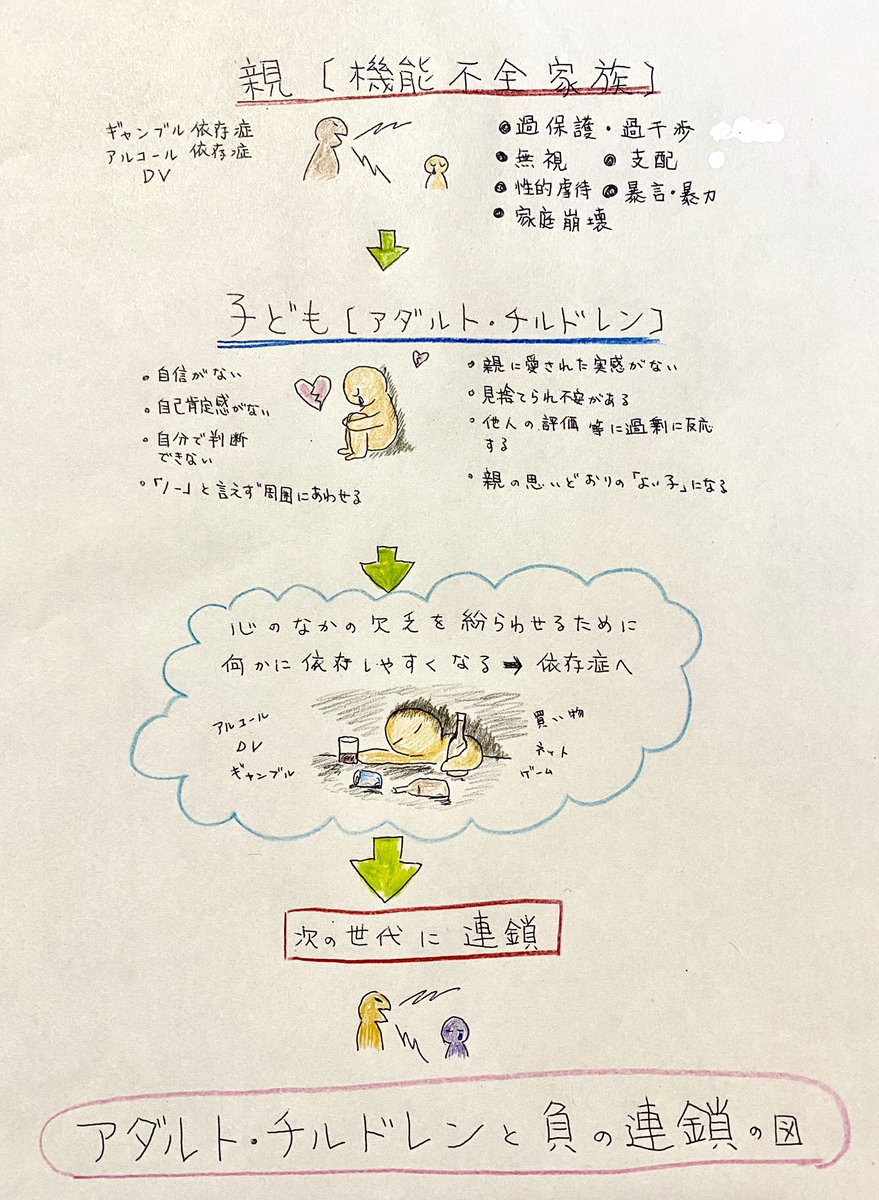 親〔機能不全家族〕
ギャンブル依存症
アルコール依存症
DV
●過保護・過干渉
●無視 ●支配
●性的虐待 ●暴言・暴力
●家庭崩壊
子ども〔アダルト・チルドレン〕
・自信がない
・自己肯定感がない
・自分で判断
できない
・「ノー」と言えず周囲にあわせる
・親に愛された実感がない
・見捨てられ不安がある
・他人の評価等に過剰に反応
する
・親の思いどおりの「よい子」になる
心のなかの欠乏を紛らわせるために
何かに依存しやすくなる➡依存症へ
アルコール
DV
ギャンブル
買い物
ネット
ゲーム
次の世代に連鎖
アダルト・チルドレンと負の連鎖の図